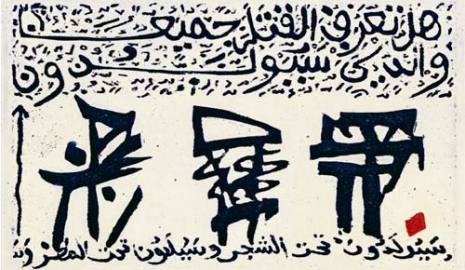 هل نعرف القتلة جميعاً
والذين سيولدون
سيولدون تحت الشجر وسيولدون تحت المطر